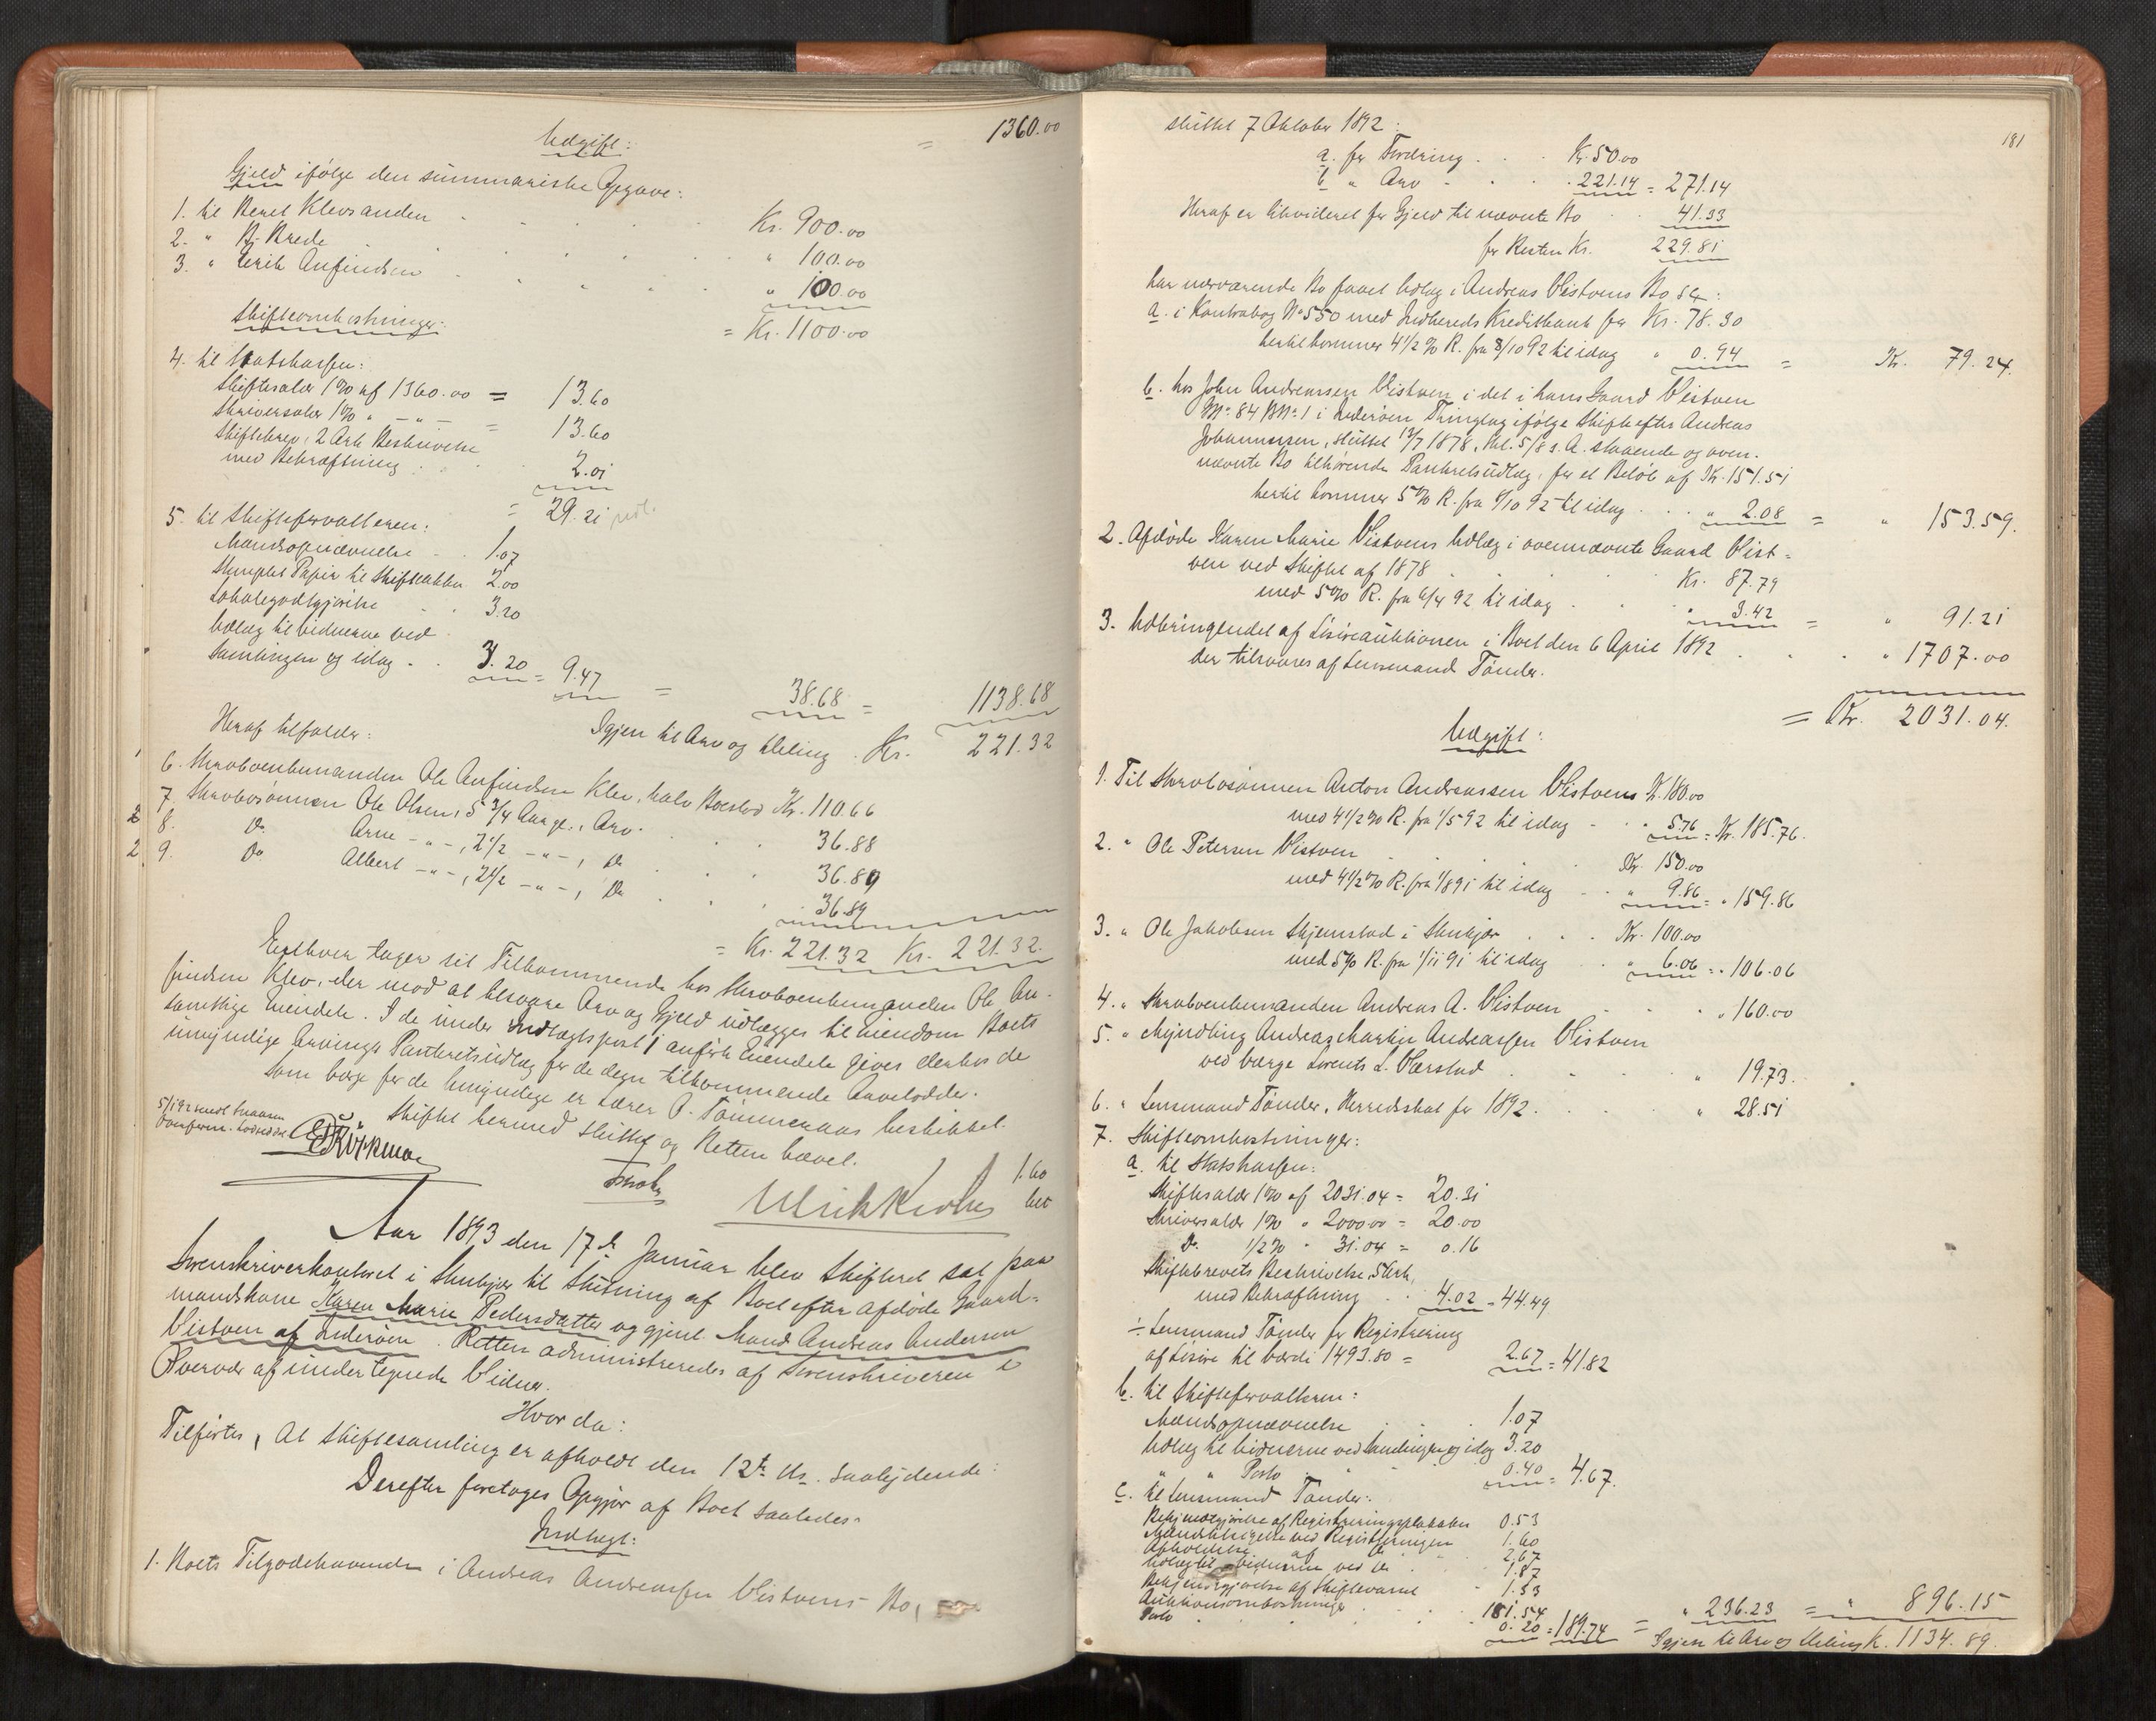 = 1360.00
Udgift:
Gjeld ifølge den summariske Opgave:
1. til Beret Klevsanden . . . Kr. 900.00
2. " B. Brede . . . " 100.00
3. " Erik Anfindsen . . . " 100.00
= Kr. 1100.00
Skifteomkostninger:
4. til Statskassen:
Skiftesaler 1% af 1360.00 = 13.60
Skriversaler 1% " - " - = 13.60
Skiftebrev, 2 Ark Beskrivelse
med Bekræftning . . 2.01
= 29.21
5. til Skifteforvalteren:
Mandsopnævnelse . . 1.07
Stemplet Papir til Skifteakten 2.00
Lokalegodtgjørelse . . 3.20
Udlæg til Vidnerne ved
Samlingen og idag . . 3.20 = 9.47 = 38.68 = 1138.68
Igjen til Arv og Deling . Kr. 221.32
Heraf tilfalder:
6. Skrabvenkemanden Ole Anfindsen Klev, halv Boeslod Kr. 110.66
7. Skrabosønnen Ole Olsen, 5 3/4 Aar gl., Arv . 36.88
8. Do Arne - " -, 2 1/2 - " -, Do . . 36.89
9. Do Albert - " -, 2 1/2 - " -, Do . . 36.89
= Kr. 221.32 Kr. 221.32.
Enhver tager sit Tilkommende hos Skrabvenkemanden Ole An-
findsen Klev, der mod at tilsvare Arv og Gjeld udlægges til Eiendom Boets
samtlige Eiendele. I de under Indtægtspost 1 anførte Eiendele gives derhos de
umyndige Arvinger Panteretsudlæg for de dem tilkommende Arvelodder.
Som Værge for de Umyndige er Lærer P. Tømmeraas beskikket.
Skiftet hermed sluttet og Retten hævet.
1.60
Aar 1893 den 17de Januar blev Skifteret sat paa
Sorenskriverkontoret i Stenkjær til Slutning af Boet efter afdøde Gaard-
mandskone Karen Marie Pedersdatter og gjenl. Mand Andreas Andersen
Vistven af Inderøen. Retten administreredes af Sorenskriveren i
Overvær af undertegnede Vidner.
Hvorda:
Tilførtes, At Skiftesamling er afholdt den 12te ds. saalydende:
Derefter foretages Opgjør af Boet saaledes:
Indtægt:
1. Boets Tilgodehavende i Andreas Andreassen Vistvens Bo,
181
sluttet 7 Oktober 1892:
a. for Fordring . . . Kr. 50.00
b. " Arv . . . 221.14 = 271.14
Heraf er likvideret for Gjeld til nævnte Bo . . 41.33
for Resten Kr. 229.81
har nærværende Bo faaet Udlæg i Andreas Vistvens Bo sl:
a. i Kontrabog No 550 med Indhereds Kreditbank for Kr. 78.30
hertil kommer 4 1/2 % R. fra 8/10 92 til idag " 0.94 = Kr. 79.24.
b. hos John Andreassen Vistven i det i hans Gaard Vistven
M No. 84 B No. 1 i Inderøen Thinglag ifølge Skifte efter Andreas
Johannessen, sluttet 12/7 1878, thl. 5/8 s. A. staaende og oven-
nævnte Bo tilhørende Panteretsudlæg, for et Beløb af Kr. 151.51
hertil kommer 5% R. fra 8/10 92 til idag . . . " 2.08 = " 153.59.
2. Afdøde Karen Marie Vistvens Udlæg i ovennævnte Gaard Vist-
ven ved Skiftet af 1878 . . . Kr. 87.79
med 5% R. fra 6/4 92 til idag . . " 3.42 = " 91.21
3. Udbringendet af Løsøreauktionen i Boet den 6 April 1892
der tilsvares af Lensmand Tønder. . . . " 1707.00
= Kr. 2031.04.
Udgift:
1. Til Skrabosønnen Anton Andreassen Vistven Kr. 180.00
med 4 1/2 % R. fra 1/5 92 til idag . . " 5.76 = Kr. 185.76.
2. " Ole Petersen Vistven . . . Kr. 150.00
med 4 1/2 % R. fra 1/8 91 til idag . . " 9.86 = " 159.86
3. " Ole Jakobsen Skjemstad i Stenkjær . . . Kr. 100.00
med 5% R. fra 1/11 91 til idag . . " 6.06 = " 106.06
4. " Skrabvenkemanden Andreas A. Vistven . . . " 160.00
5. " Myndling Andreas Martin Andreassen Vistven
ved Værge Lorents L. Værstad . . . " 19.73.
6. " Lensmand Tønder, Herredsskat for 1892. . . . " 28.51
7. Skifteomkostninger:
a. til Statskassen:
Skiftesaler 1% af 2031.04 = 20.31
Skriversaler 1% " 2000.00 = 20.00
Do. 1/2 % " 31.04 = 0.16
Skiftebrevets Beskrivelse, 5 Ark,
med Bekræftning . . 4.02 = 44.49
÷ Lensmand Tønder for Registrering
af Løsøre til Værdi 1493.80 = 2.67 = 41.82
b. til Skifteforvalteren:
Mandsopnævnelse . . . 1.07
Udlæg til Vidnerne ved Samlingen og idag 3.20
" " Porto . . 0.40 = 4.67.
c. til Lensmand Tønder:
Bekjendtgjørelse af Registreringsplakaten 0.53
Mandstilsigelse ved Registreringen 1.60
Afholdelse af Do 2.67
Udlæg til Vidnerne ved Do . 1.87
Bekjendtgjørelse af Skiftevarsel . 1.33
Auktionsomkostninger . . . 181.54
Porto . . . 0.20 = 189.74 = " 236.23 = " 896.15
Igjen til Arv og Deling K. 1134.89.